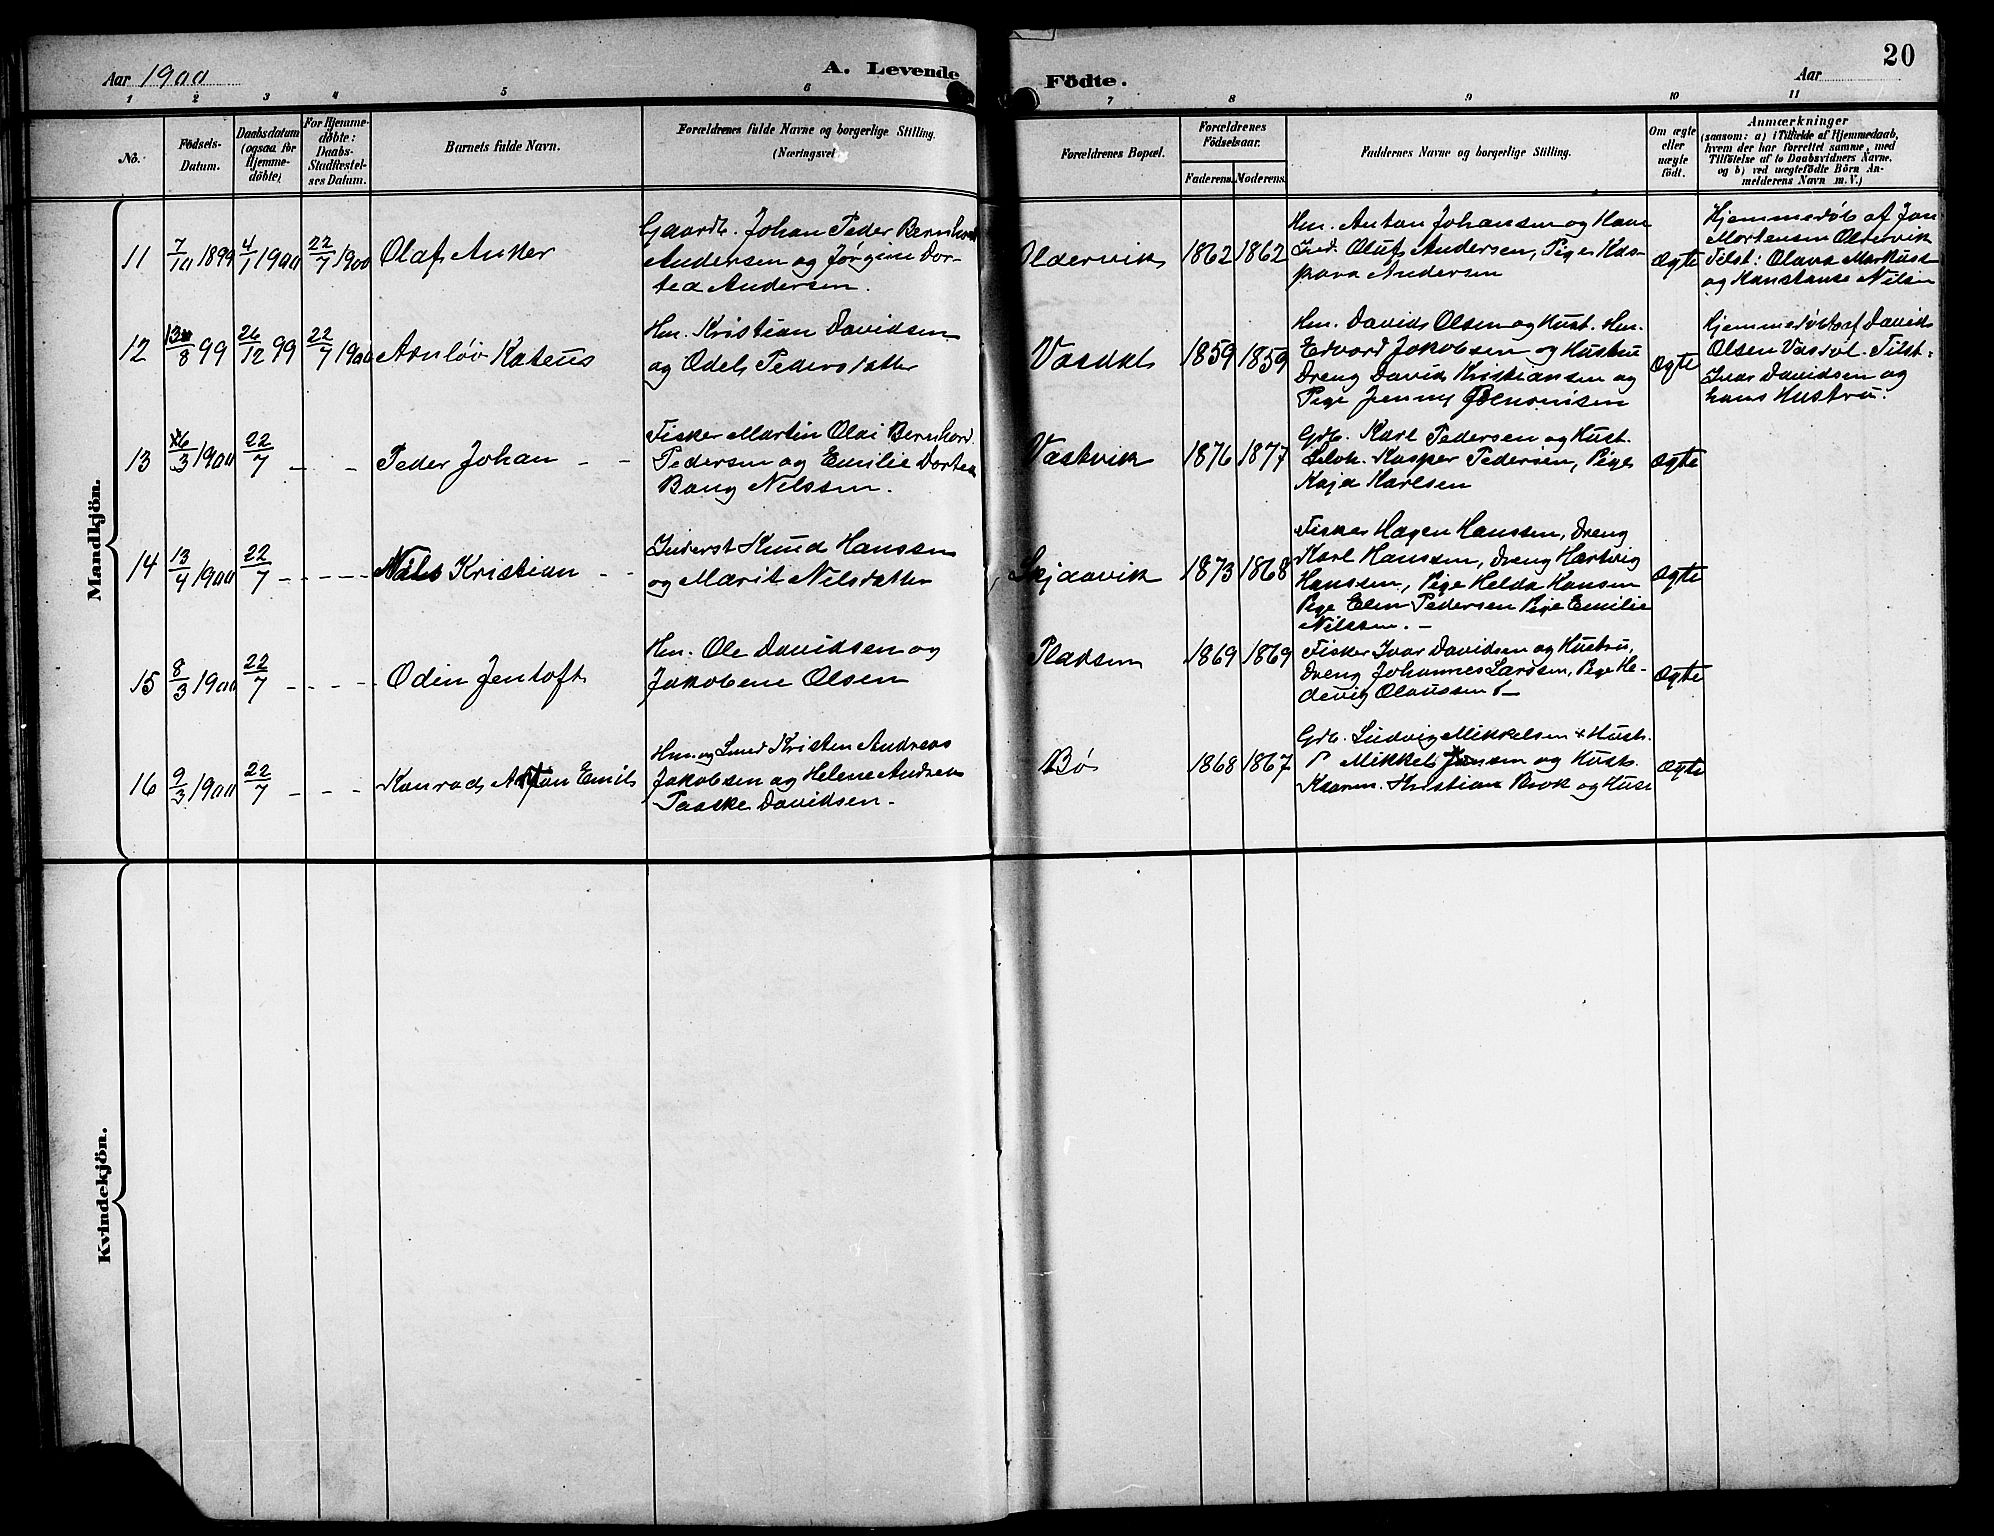 Aar 1900
A. Levende Födte.
Aar
20
1 2 3 4 5 6 7 8 9 10 11
No.
Födsels-
Datum.
Daabsdatum
(ogsaa for
Hjemme-
döbte)
For Hjemme-
döbte:
Daabs-
Stadfæstel-
ses Datum.
Barnets fulde Navn.
Forældrenes fulde Navne og borgerlige Stilling.
(Næringsvei
Forældrenes Bopæl.
Forældrenes
Födselsaar.
Faderens. Moderens.
Faddernes Navne og borgerlige Stilling.
Om ægte
eller
uægte
födt.
Anmærkninger
(saasom: a) i Tilfælde af Hjemmedaab,
hvem der har forrettet samme, med
Tilföielse af to Daabsvidners Navne,
og b) ved uægtefödte Börn An-
melderens Navn m. V.)
Mandkjön.
11 7/10 1899 4/1 1900 22/7 1900 Olaf Anker
Gaardb. Johan Peder Bernhard
Andersen og Jørgine Dor-
tea Andersen.
Oldervik 1862 1862
Hm. Anton Johansen og Kone
Ind. Oluf Andersen, Pige Kas-
para Andersen
Ægte
Hjemmedøb af Jon
Mortensen Oldervik
Tilst: Olava Markuss
og Konstanse Nilsen
12 13/8 99 26/12 99 22/7 1900 Arnløv Kateus
Hm. Kristian Davidsen
og Odel Pedersdatter
Vasdal 1859 1859
Hm. David Olsen og Hust. Hm.
Edvard Jakobsen og Hustru
Dreng David Kristiansen og
Pige Jenny
Ægte
Hjemmedøbt af David
Olsen Vasdal. Tilst:
Ivar Davidsen og
hans Hustru.
13 /3 1900 22/7 - - Peder Johan - -
Fisker Martin Olai Bernhard
Pedersen og Emilie Dortea
Bang Nilssen.
Vastvik 1876 1877
Grb. Karl Pedersen og Hust.
Selvh. Kasper Pedersen, Pige
Kaja Karlsen
Ægte
14 13/4 1900 22/7 - - - - Nils Kristian - -
Inderst Knud Hanssen
og Marit Nilsdatter
Skjaavik 1873 1868
Fisker Hagen Hanssen, Dreng
Karl Hanssen, Dreng Hartvig
Hanssen, Pige Helda Hansen
Pige Elen Pedersen Pige Emilie
Nilssen. -
Ægte
15 8/3 1900 22/7 - - - - Odin Jentoft
Hm. Ole Davidsen og
Jakobene Olsen
Pladsen 1869 1869
Fisker Ivar Davidsen og Hustru,
Dreng Johannes Larssen, Pige He-
devig Olaussen
Ægte
16 9/3 1900 22/7 - - - Konrad Anton Emil
Hm. og Smed Kristen Andreas
Jakobsen og Helene Andrea
Paaske Davidsen.
Bø 1868 1867
Grb. Ludvig Mikkelsen + Hust.
Mikkel Jensen og Hust.
Kaarm. Kristian Brok og Hust
Ægte
Kvindekjön.